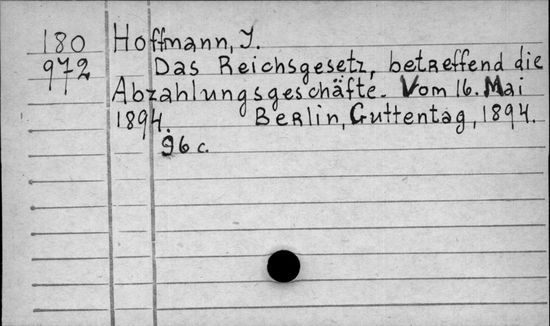 180 Hoffmann, J.
972 Das Reichsgesetz, betreffend die
Abzahlungsgeschäfte. Vom 16. Mai
1894. Berlin, Guttentag, 1894.
96 c.